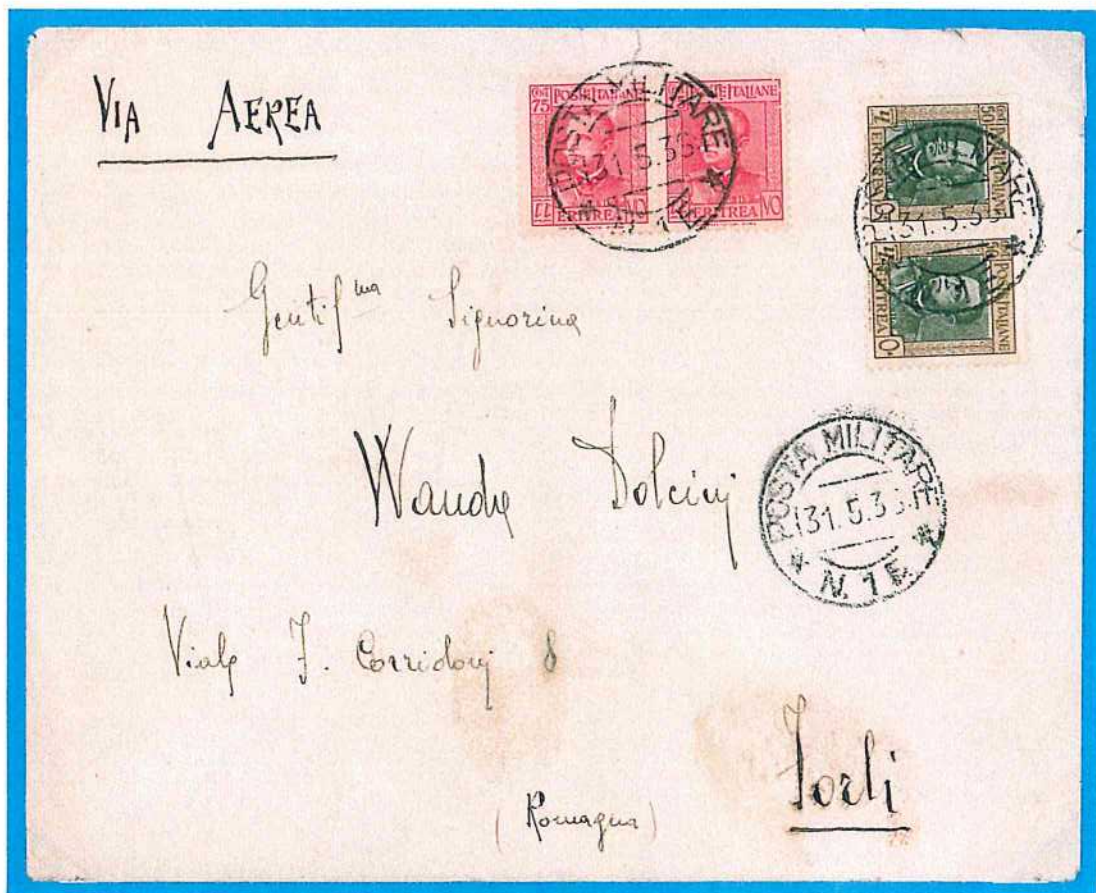 VIA AEREA
CENT 75 POSTE ITALIANE
ERITREA
POSTE ITALIANE
ERITREA
POSTA MILITARE
31.5.36
CENT 50 POSTE ITALIANE
ERITREA
31.5.3
50 POSTE ITALIANE
ERITREA
Gentil ma Signorina
Wanda Dolcini
POSTA MILITARE
31.5.36
* N. 1 E. *
Viale F. Corridoni 8
Forli
(Romagna)